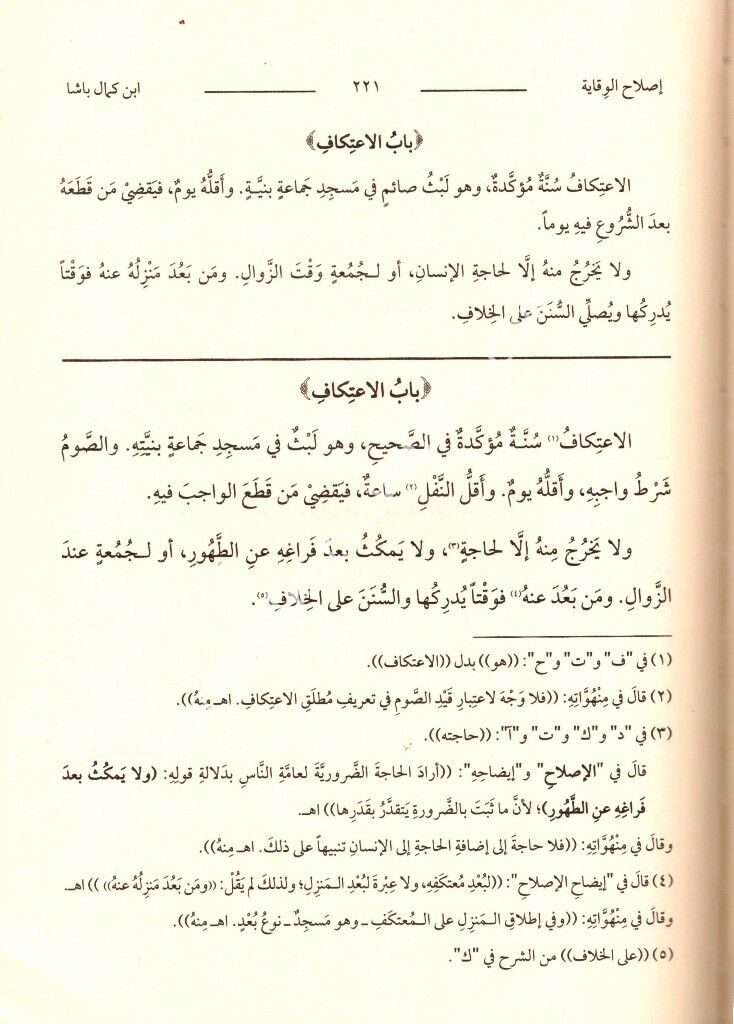 إصلاح الوِقاية ٢٢١ ابن كمال باشا
﴿بابُ الاعتِكافِ﴾
الاعتِكافُ سُنَّةٌ مُؤكَّدةٌ، وهو لَبْثُ صائمٍ في مَسجِدِ جَماعةٍ بنيَّةٍ. وأَقلُّهُ يومٌ، فيَقضِيْ مَن قَطَعَهُ
بعدَ الشُّرُوعِ فيهِ يوماً.
ولا يَخرُجُ منهُ إلَّا لحاجةِ الإنسانِ، أو لـجُمُعةٍ وَقْتَ الزَّوالِ. ومَن بَعُدَ مَنْزِلُهُ عنهُ فوَقْتاً
يُدرِكُها ويُصلِّي السُّنَنَ على الخِلافِ.
﴿بابُ الاعتِكافِ﴾
الاعتِكافُ(١) سُنَّةٌ مُؤكَّدةٌ في الصَّحيحِ، وهو لَبْثٌ في مَسجِدِ جَماعةٍ بنيَّتِهِ. والصَّومُ
شَرْطُ واجبِهِ، وأَقلُّهُ يومٌ. وأَقلُّ النَّفْلِ(٢) ساعةٌ، فيَقضِيْ مَن قَطَعَ الواجبَ فيهِ.
ولا يَخرُجُ مِنهُ إلَّا لحاجةٍ(٣)، ولا يَمكُثُ بعدَ فَراغِهِ عنِ الطَّهُورِ، أو لـجُمُعةٍ عندَ
الزَّوالِ. ومَن بَعُدَ عنهُ(٤) فوَقْتاً يُدرِكُها والسُّنَنَ على الخِلافِ(٥).
(١) في "ف" و"ت" و"ح": ((هو)) بدل ((الاعتكاف)).
(٢) قالَ في مِنْهُوَّاتِهِ: ((فلا وَجْهَ لاعتِبارِ قَيْدِ الصَّومِ في تعريفِ مُطلَقِ الاعتِكافِ. اهـ مِنهُ)).
(٣) في "د" و"ك" و"ت" و"آ": ((حاجته)).
قالَ في "الإصلاحِ" و"إيضاحِهِ": ((أرادَ الحاجةَ الضَّروريَّةَ لعامَّةِ النَّاسِ بدَلالةِ قولِهِ: (ولا يَمكُثُ بعدَ
فَراغِهِ عنِ الطَّهُورِ)؛ لأنَّ ما ثَبَتَ بالضَّرورةِ يَتقدَّرُ بقَدَرِها)) اهـ.
وقالَ في مِنْهُوَّاتِهِ: ((فلا حاجةَ إلى إضافةِ الحاجةِ إلى الإنسانِ تنبيهاً على ذلكَ. اهـ مِنهُ)).
(٤) قالَ في "إيضاحِ الإصلاحِ": ((لبُعْدِ مُعتكَفِهِ، ولا عِبْرةَ لبُعْدِ الـمَنزِلِ؛ ولذلكَ لم يَقُلْ: «ومَن بَعُدَ مَنزِلُهُ عنهُ» )) اهـ.
وقالَ في مِنْهُوَّاتِهِ: ((وفي إطلاقِ الـمَنزِلِ على الـمُعتكَفِ ـ وهو مَسجِدٌ ـ نوعُ بُعْدٍ. اهـ مِنهُ)).
(٥) ((على الخلاف)) من الشرح في "ك".